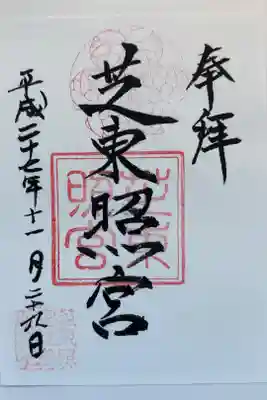 奉拝
芝東照宮
芝東
照宮
平成二十七年十一月二十八日